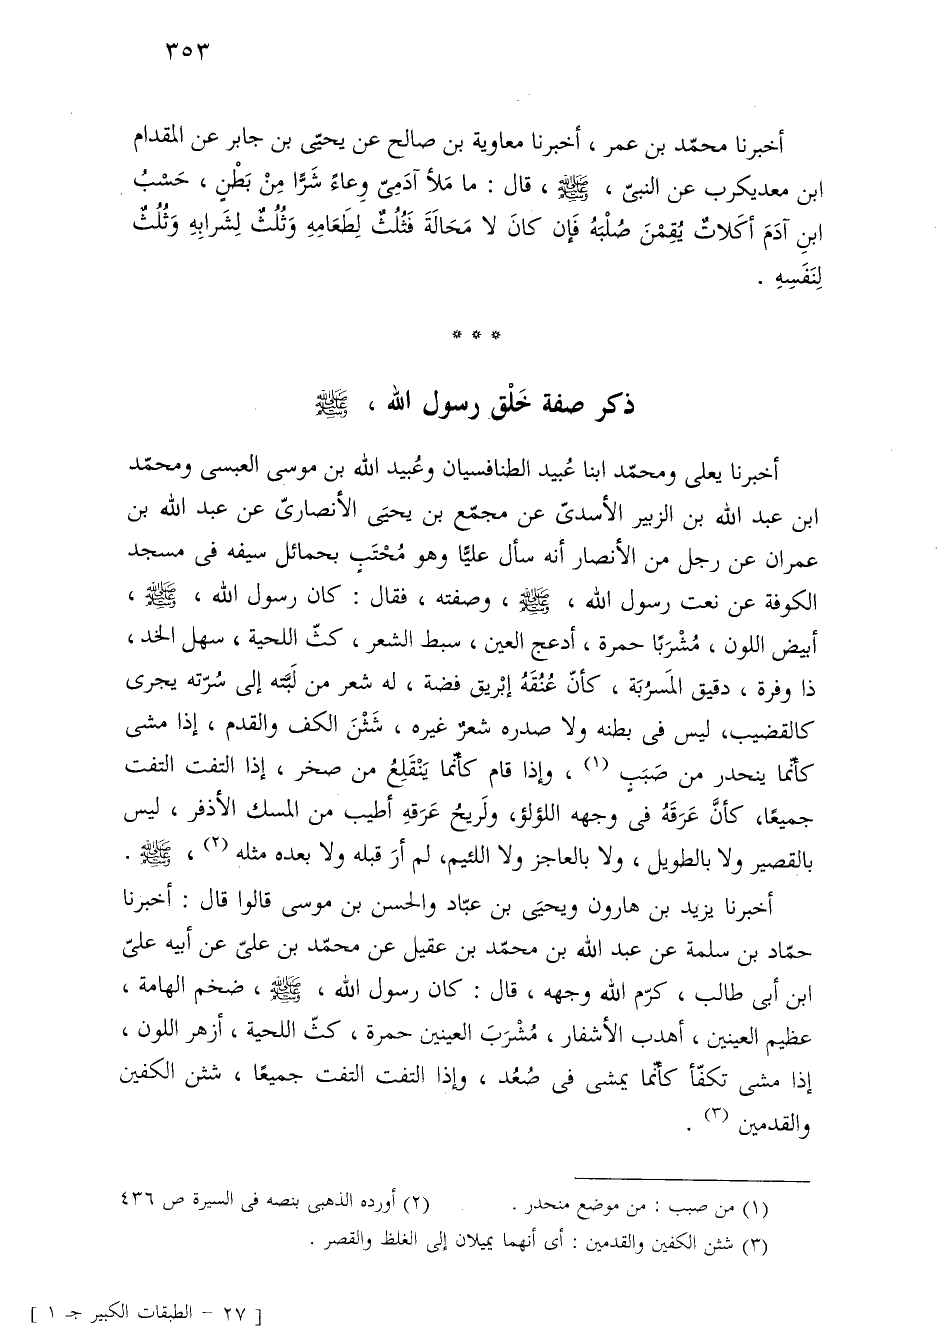 ٣٥٣
أخبرنا محمّد بن عمر ، أخبرنا معاوية بن صالح عن يحيّى بن جابر عن المقدام
ابن معديكرب عن النبىّ ، ﷺ ، قال : ما مَلأ آدَمِىّ وِعاءً شَرًّا مِنْ بَطْنٍ ، حَسْبُ
ابنِ آدَمَ أكَلاتٌ يُقِمْنَ صُلْبَهُ فَإن كانَ لا مَحَالَةَ فَثُلُثٌ لِطَعَامِهِ وَثُلُثٌ لِشَرابِهِ وَثُلُثٌ
لِنَفَسِهِ .
* * *
ذكر صفة خَلْق رسول الله ، ﷺ
أخبرنا يعلى ومحمّد ابنا عُبيد الطنافسيان وعُبيد الله بن موسى العبسى ومحمّد
ابن عبد الله بن الزبير الأسدىّ عن مجمّع بن يحيَى الأنصارىّ عن عبد الله بن
عمران عن رجل من الأنصار أنه سأل عليًّا وهو مُحْتَبٍ بحمائل سيفه فى مسجد
الكوفة عن نعت رسول الله ، ﷺ ، وصفته ، فقال : كان رسول الله ، ﷺ ،
أبيض اللون ، مُشْرَبًا حمرة ، أدعج العين ، سبط الشعر ، كثّ اللحية ، سهل الخد ،
ذا وفرة ، دقيق المَسرُبَة ، كأنّ عُنُقَهُ إبْريق فضة ، له شعر من لَبَّته إلى سُرّته يجرى
كالقضيب، ليس فى بطنه ولا صدره شعرٌ غيره ، شَثْنَ الكف والقدم ، إذا مشى
كأنّما ينحدر من صَبَبٍ (١) ، وإذا قام كأنّما يَنْقَلِعُ من صخر ، إذا التفت التفت
جميعًا، كأنَّ عَرَقَهُ فى وجهه اللؤلؤ، ولَريحُ عَرَقهِ أطيب من المسك الأذفر ، ليس
بالقصير ولا بالطويل ، ولا بالعاجز ولا اللئيم، لم أرَ قبله ولا بعده مثله (٢) ، ﷺ .
أخبرنا يزيد بن هارون ويحيَى بن عبّاد والحسن بن موسى قالوا قال : أخبرنا
حمّاد بن سلمة عن عبد الله بن محمّد بن عقيل عن محمّد بن علىّ عن أبيه علىّ
ابن أبى طالب ، كرّم الله وجهه ، قال : كان رسول الله ، ﷺ ، ضخم الهامة ،
عظيم العينين ، أهدب الأشفار ، مُشْرَبَ العينين حمرة ، كثّ اللحية ، أزهر اللون ،
إذا مشى تكفّأ كأنّما يمشى فى صُعُد ، وإذا التفت التفت جميعًا ، شثن الكفين
والقدمين (٣) .
(١) من صبب : من موضع منحدر . (٢) أورده الذهبى بنصه فى السيرة ص ٤٣٦
(٣) شثن الكفين والقدمين : أى أنهما يميلان إلى الغلظ والقصر .
[ ٢٧ – الطبقات الكبير جـ ١ ]